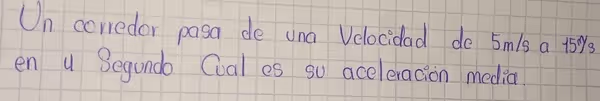 Un corredor pasa de una Velocidad de 5m/s a 15m/s
en 4 Segundo Cual es su aceleración media